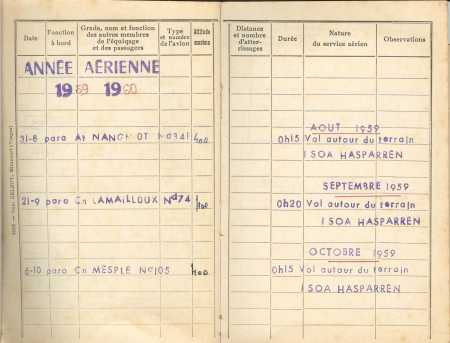 Date
Fonction à bord
Grade, nom et fonction des autres membres de l'équipage et des passagers
Type et numéro de l'avion
Altitude
Distance et nombre d'atterrissages
Durée
Nature du service aérien
Observations
ANNÉE AÉRIENNE
1959 1960
AOUT 1959
31-8 para At NANCHOT No341 400 0h15 Vol autour du terrain
1 SOA HASPARREN
SEPTEMBRE 1959
21-9 para Cn LAMAILLOUX No74 400 0h20 Vol autour du terrain
1 SOA HASPARREN
OCTOBRE 1959
6-10 para Cn MESPLE No105 400 0h15 Vol autour du terrain
1 SOA HASPARREN